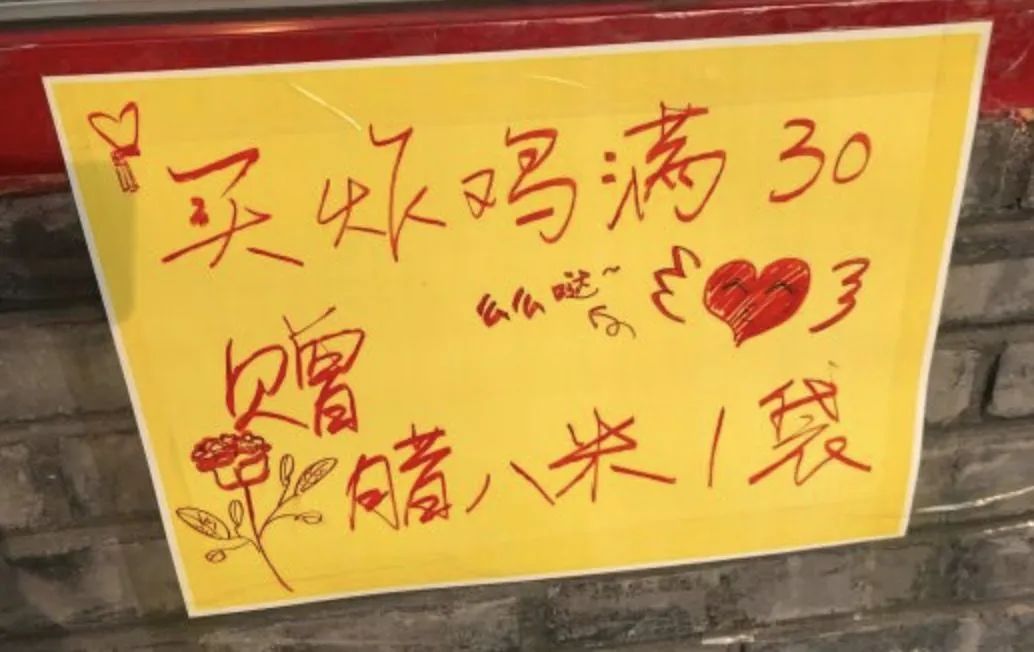 买炸鸡满30
么么哒~
赠
腊八米1袋